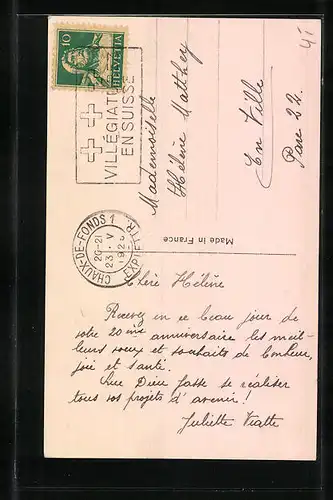 10
HELVETIA
VILLÉGIATUREZ
EN SUISSE
CHAUX-DE-FONDS 1
EXP. LETTR.
20-21
23. V
Mademoiselle
Hélène Matthey
En Ville
Parc 22.
Made in France
Chère Hélène
Recevez en ce beau jour de
votre 20me anniversaire les meil-
leurs vœux et souhaits de bonheur,
joie et santé.
Que Dieu fasse se réaliser
tous vos projets d'avenir!
Juliette Viatte